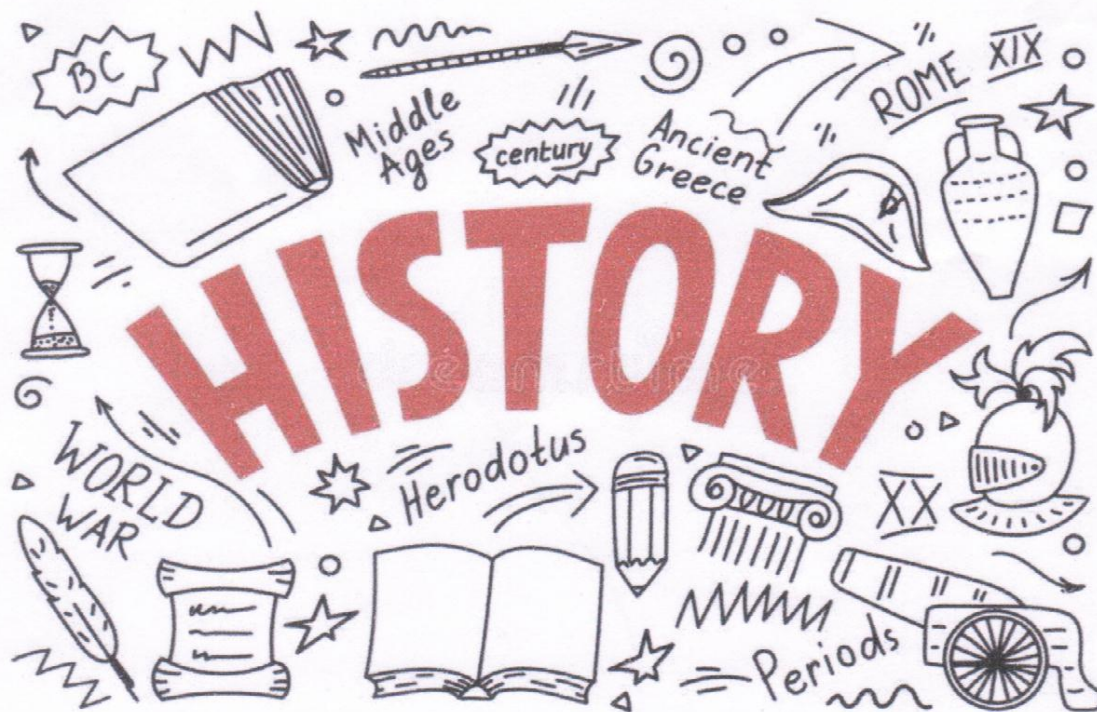 BC
Middle
Ages
century
Ancient
Greece
ROME XIX
HISTORY
dreamstime
WORLD
WAR
Herodotus
XX
Periods